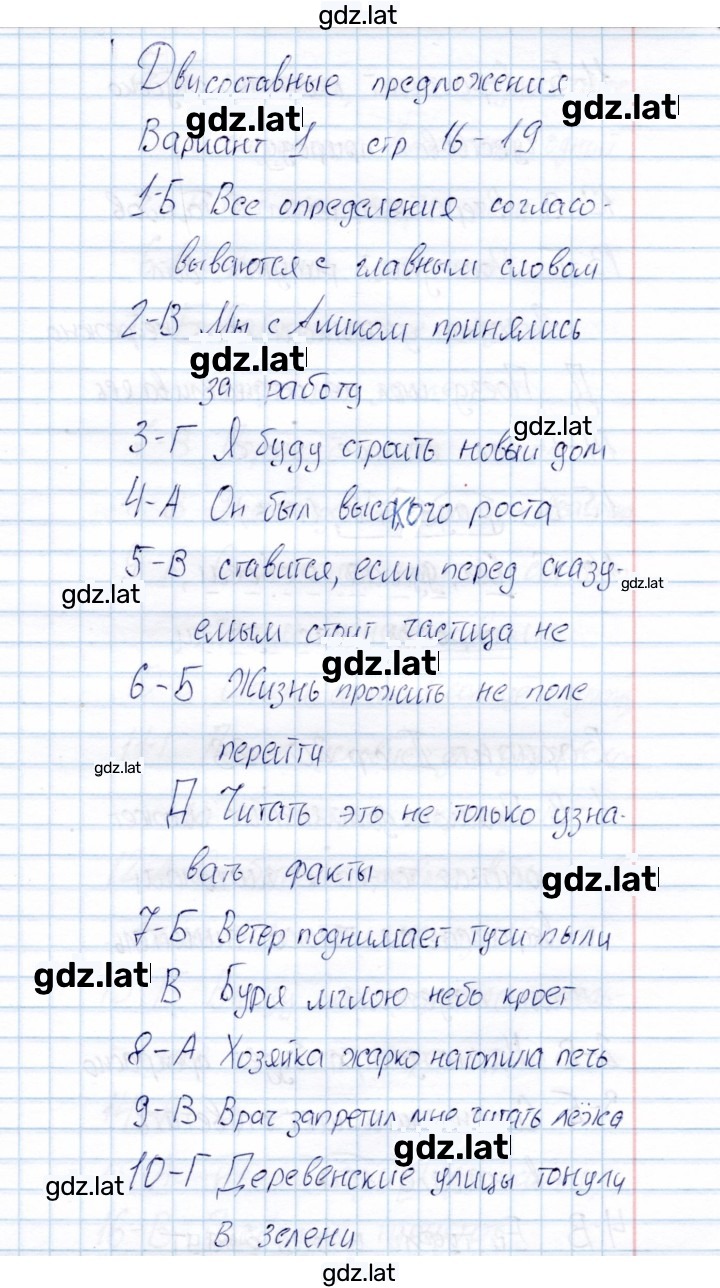 gdz.lat
Двусоставные предложения
gdz.lat
gdz.lat
Вариант 1 стр 16-19
1-Б Все определения согласо-
вываются с главным словом
2-В Мы с Аликом принялись
gdz.lat
за работу
gdz.lat
3-Г Я буду строить новый дом
4-А Он был высокого роста
5-В ставится, если перед сказу-
gdz.lat
gdz.lat
емым стоит частица не
gdz.lat
6-Б Жизнь прожить не поле
перейти
gdz.lat
Д Читать это не только узна-
вать факты
gdz.lat
7-Б Ветер поднимает тучи пыли
gdz.lat
В Буря мглою небо кроет
8-А Хозяйка жарко натопила печь
9-В Врач запретил мне читать лёжа
gdz.lat
10-Г Деревенские улицы тонули
gdz.lat
в зелени
gdz.lat